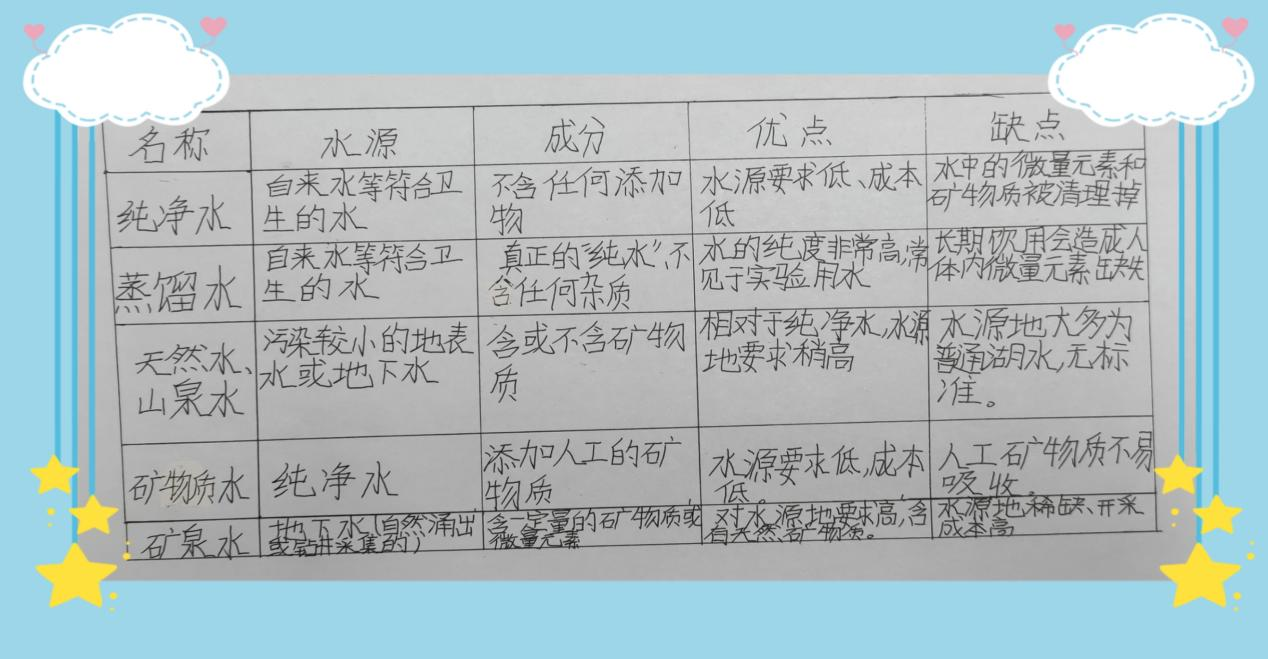 名称 水源 成分 优点 缺点
纯净水
自来水等符合卫
生的水
不含任何添加
物
水源要求低、成本
低
水中的微量元素和
矿物质被清理掉
蒸馏水
自来水等符合卫
生的水
真正的“纯水”,不
含任何杂质
水的纯度非常高,常
见于实验用水
长期饮用会造成人
体内微量元素缺失
天然水、
山泉水
污染较小的地表
水或地下水
含或不含矿物
质
相对于纯净水,水源
地要求稍高
水源地大多为
普通湖水,无标
准。
矿物质水
纯净水
添加人工的矿
物质
水源要求低,成本
低。
人工矿物质不易
吸收。
矿泉水
地下水(自然涌出
或钻井采集的)
含一定量的矿物质或
微量元素
对水源地要求高,含
有天然矿物质。
水源地稀缺、开采
成本高